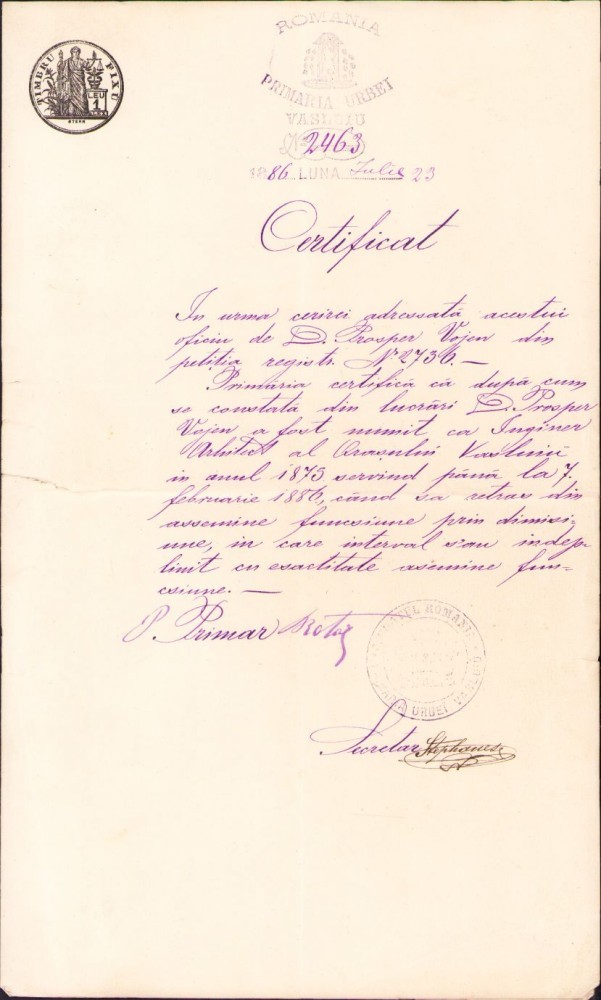 TIMBRU FIXU
LEU
1
STERN
ROMANIA
PRIMARIA URBEI
VASLUIU
No 2463
1886 LUNA Iulie 23
Certificat
In urma cerirei adressată acestui
oficiu de D. Prosper Vojen din
petitia registr. No 2736. —
Primăria certifică că după cum
se constată din lucrări D. Prosper
Vojen a fost numit ca Inginer
Arhitect al Orasului Vasluiŭ
in anul 1873 servind până la 7.
februarie 1886, când sa retras din
assemine funcsiune prin dimisi-
une, in care interval s'au indep-
linit cu esactitate asemine fun-
csiune. —
P. Primar
URBEI
Secretar Stephanes